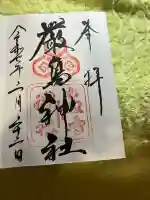 奉拝
厳島神社
令和七年一月二十二日